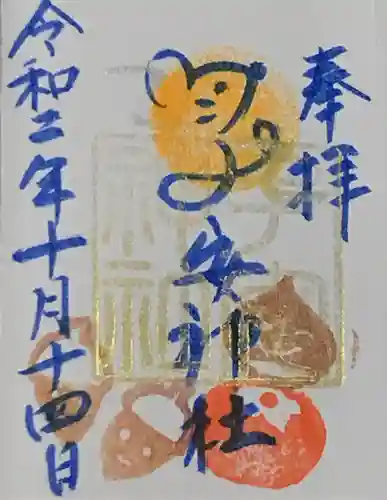 奉拝
安神社
令和二年十月十四日